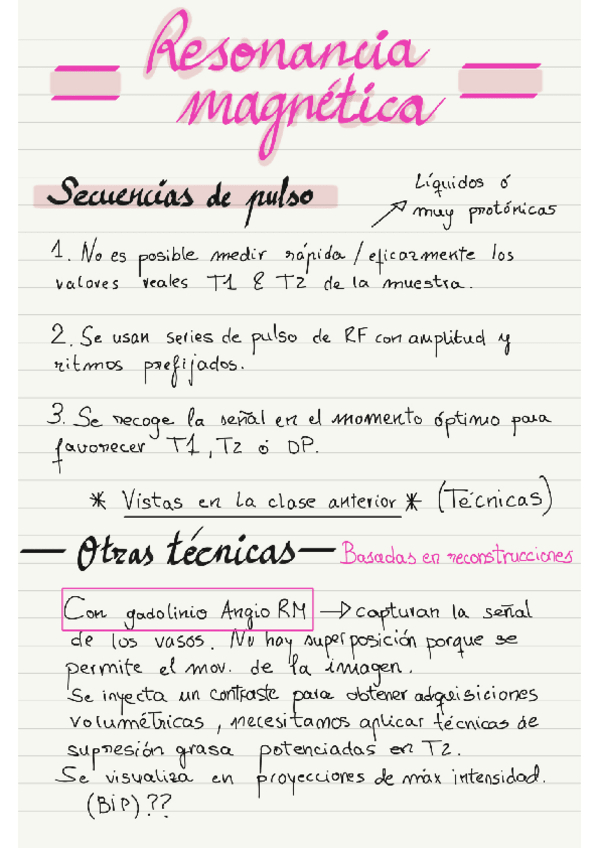 Resonancia
magnética
Secuencias de pulso
Líquidos ó
muy protónicas
1. No es posible medir rápida / eficazmente los
valores reales T1 & T2 de la muestra.
2. Se usan series de pulso de RF con amplitud y
ritmos prefijados.
3. Se recoge la señal en el momento óptimo para
favorecer T1, T2 ó DP.
* Vistas en la clase anterior * (Técnicas)
— Otras técnicas — Basadas en reconstrucciones
Con gadolinio Angio RM → capturan la señal
de los vasos. No hay superposición porque se
permite el mov. de la imagen.
Se inyecta un contraste para obtener adquisiciones
volumétricas, necesitamos aplicar técnicas de
supresión grasa potenciadas en T2.
Se visualiza en proyecciones de máx intensidad.
(BiP)??